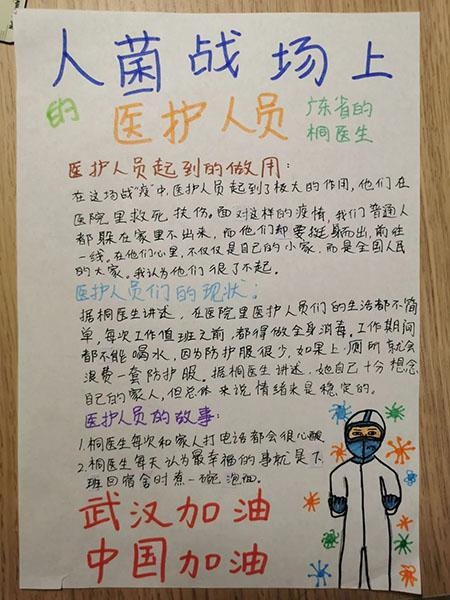 人菌战场上
的 医护人员 广东省的
桐医生
医护人员起到的做用:
在这场战"疫"中,医护人员起到了极大的作用,他们在
医院里救死扶伤。面对这样的疫情,我们普通人
都躲在家里不出来,而他们却要挺身而出,前往
一线。在他们心里,不仅仅是自己的小家,而是全国人民
的大家。我认为他们很了不起。
医护人员们的现状:
据桐医生讲述,在医院里医护人员们的生活都不简
单,每次工作值班之前,都得做全身消毒。工作期间
都不能喝水,因为防护服很少,如果上厕所就会
浪费一套防护服。据桐医生讲述,她自己十分想念
自己的家人,但总体来说情绪来是稳定的。
医护人员的故事:
1.桐医生每次和家人打电话都会很心酸
2.桐医生每天认为最幸福的事就是下
班回宿舍时煮一碗泡面。
武汉加油
中国加油